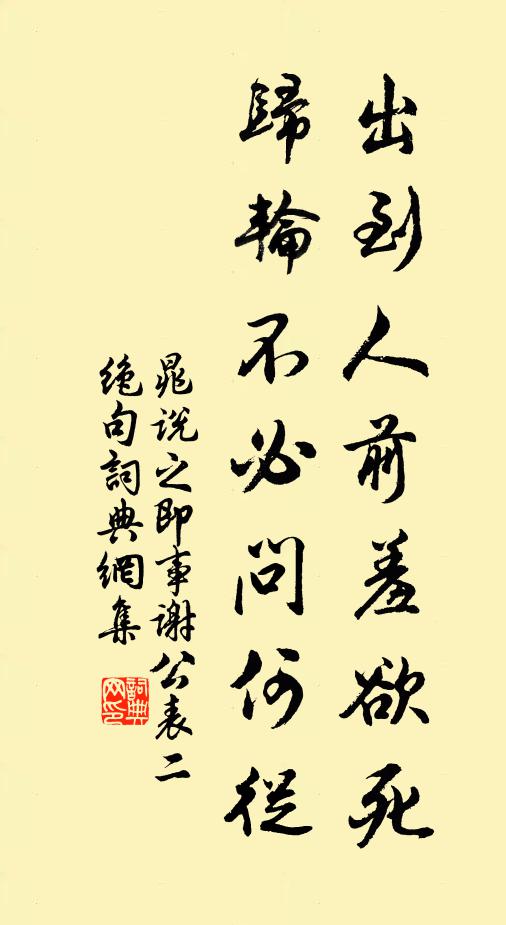 出到人前羞欲死
歸輪不必問何從
晁說之即事謝公表二
絶句詞典網集
詞典
网印